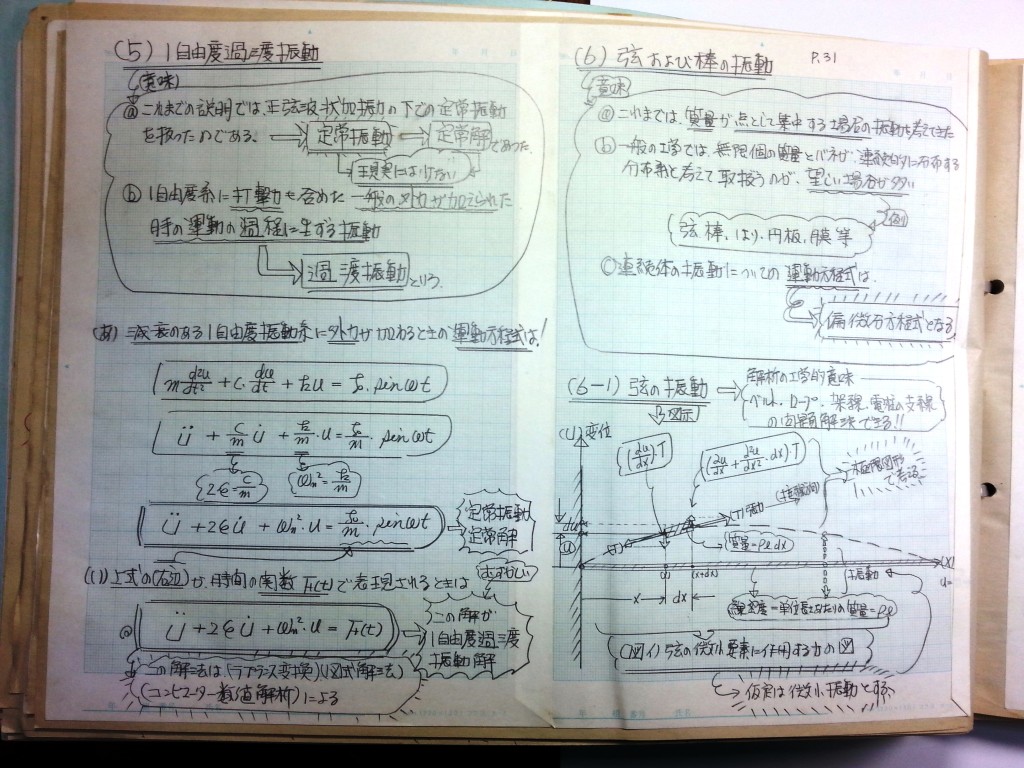 (5) 1自由度過渡振動
(意味)
ⓐ これまでの説明では、正弦波状加振力の下での定常振動
を扱ったのである。 定常振動 定常解 であった.
現実には少ない
ⓑ 1自由度系に打撃力も含めた一般の外力が加えられた
時の運動の過程に生ずる振動
過渡振動 という
(あ) 減衰のある1自由度振動系に外力が加わるときの運動方程式は!
m d²u/dt² + c・du/dt + ku = f₀・sinωt
ü + c/m u̇ + k/m・u = f₀/m・sinωt
2ε = c/m ωn² = k/m
ü + 2εu̇ + ωn²・u = f₀/m・sinωt
定常振動
定常解
(い) 上式の(右辺)が、時間の関数 F(t)で表現されるときは
ü + 2εu̇ + ωn²・u = F(t)
この解が
1自由度過渡
振動解
この解法は(ラプラス変換)(図式解法)
(コンピューター数値解析)による
(6) 弦および棒の振動 P.31
(意味)
ⓐ これまでは、質量が点として集中する場合の振動を考えてきた
ⓑ 一般の工学では、無限個の質量とバネが、連続的に分布する
分布系と考えて取扱うのが、望しい場合が多い
(例)
弦、棒、はり、円板、膜等
ⓒ 連続体の振動についての運動方程式は、
偏微分方程式となる
(6-1) 弦の振動
解析の工学的意味
ベルト、ロープ、架線、電柱の支線
の問題解決できる!!
図示
(U) 変位
(du/dx)・T
(du/dx + d²u/dx²・dx)・T
極限図形
で考える
(T) 張力
(接線方向)
質量=ρldx
du
(U)
(x)
(x+dx)
(X)
x
dx
振動
線密度=単位長さ当たりの質量=ρl
(図イ) 弦の微小要素に作用する力の図
仮定は微小振動とする